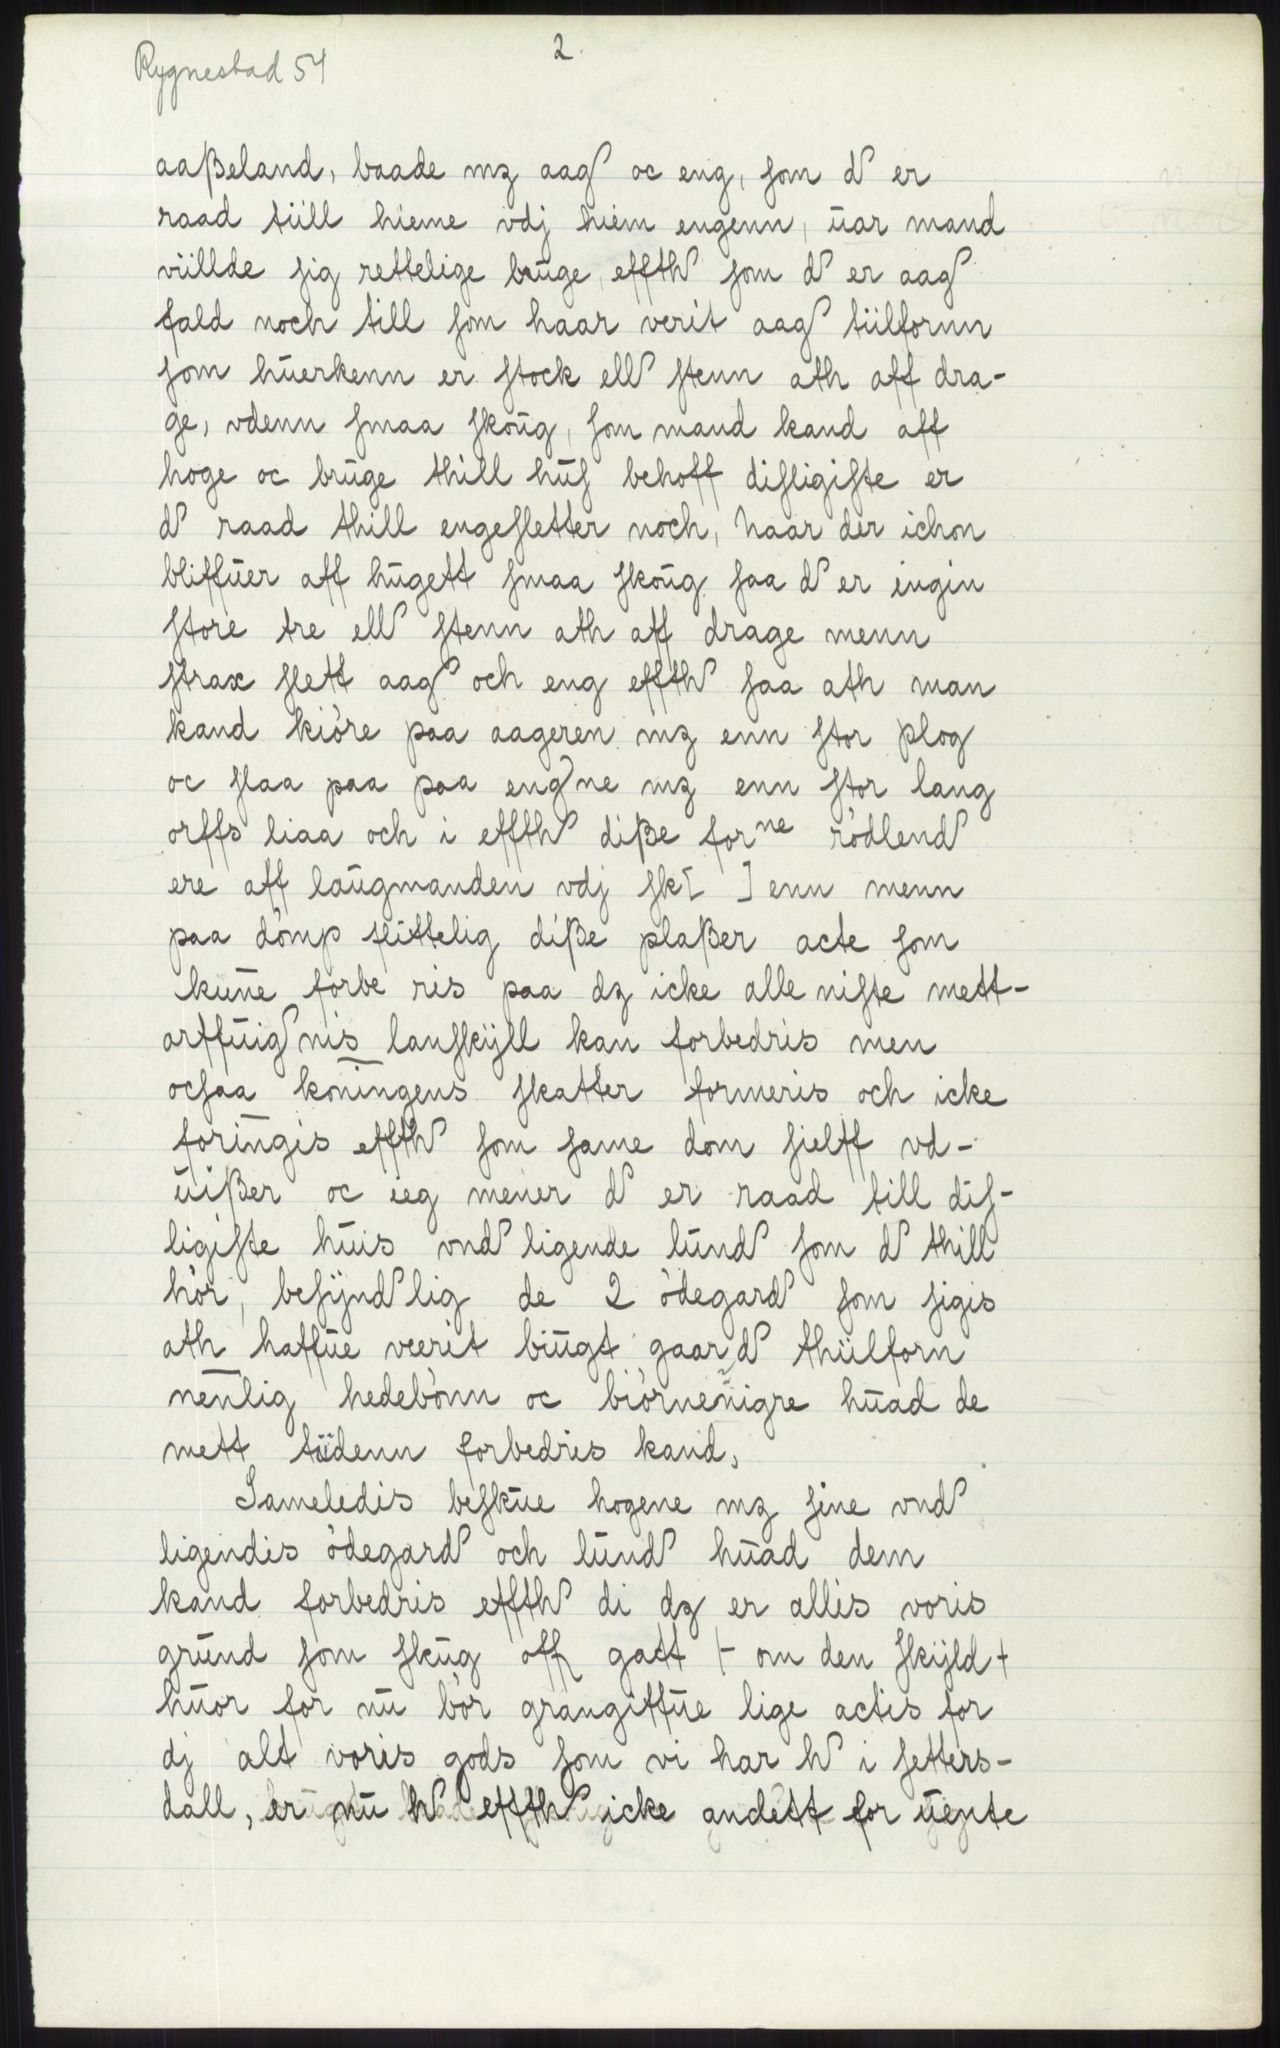 Rygnestad 54
2.
aaßeland, baade mz aag oc eng, som d er
raad tiill hieme vdj hiem engenn, uar mand
viillde sig rettelige bruge effth som d er aag
fald noch till som haar verit aag tiilfornn
som huerkenn er stock ell stenn ath aff dra-
ge, vdenn smaa skoug, som mand kand aff
hoge oc bruge thill hus behoff disligiste er
d raad thill engesletter noch, naar der ichon
bliffuer aff hugett smaa skoug saa d er eingin
store tre ell stenn ath aff drage menn
strax slett aag och eng effth saa ath man
kand kiöre paa aageren mz enn stor plog
oc slaa paa paa engne mz enn stor lang
orffs liaa och i effth diße forne rödlend
ere aff laugmanden vdj sk[ ] enn menn
paa dömp flittelig diße plaßer acte som
kune forbe ris paa dz icke alle niste mett-
arffuig nis lanskyll kan forbedris men
ocsaa koningens skatter formeris och icke
foringis effth som same dom sielff vd-
uißer oc ieg mener d er raad till dis-
ligiste huis vnd ligende lund som d thill
hör, besynd lig de 2 ödegard som sigis
ath haffue veerit biugt gaard thiilforn
nenlig hedebönn oc biörnenigre huad de
mett tiidenn forbedris kand,
Sameledis beskue hogene mz sine vnd
ligendis ödegard och lund huad dem
kand forbedris effth di dz er allis voris
grund som skug aff gatt + om den skyld +
huor for nu bör grangiffue lige actis for
dj alt voris gods som vi har h i setters-
dall, er nu h effth icke andett for uente